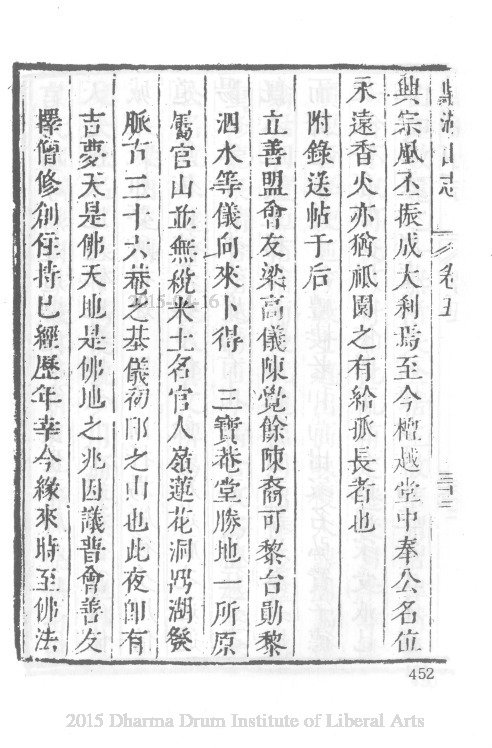 鼎湖山志　卷五　三十三
興宗風丕振成大利焉至今檀越堂中奉公名位
永遠香火亦猶祇園之有給孤長者也
附錄送帖于后
立善盟會友梁高儀陳覺餘陳裔可黎台勛黎
泗水等儀向來卜得　三寶菴堂勝地一所原
屬官山並無稅米土名官人嶺蓮花洞鼎湖發
脈古三十六菴之基儀初卽之山也此夜卽有
吉夢天是佛天地是佛地之兆因議普會善友
擇僧修創住持已經歷年幸今緣來時至佛法
2015-04-16
452
2015 Dharma Drum Institute of Liberal Arts